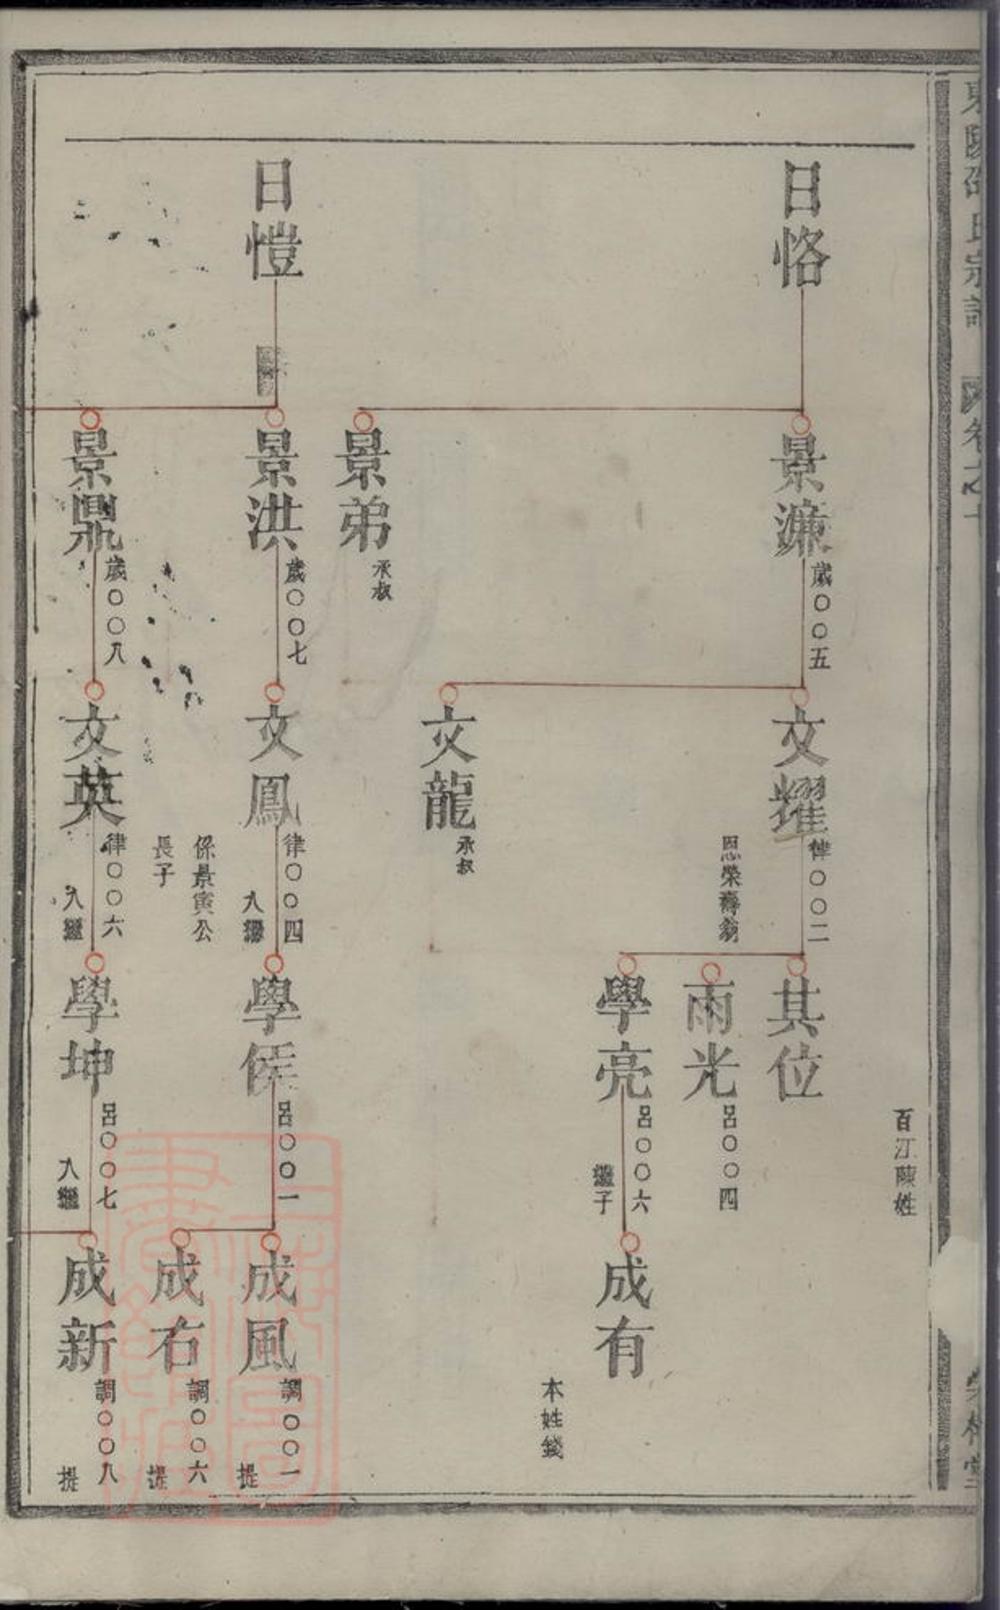 東陽邵氏宗譜
卷之十
百江陳姓
日恪
景濂
歲〇〇五
文耀
律〇〇二
恩榮壽翁
其位
雨光
呂〇〇四
學亮
呂〇〇六
繼子
成有
本姓錢
文龍
承叔
景弟
承叔
日愷
景洪
歲〇〇七
文鳳
律〇〇四
入繼
係景寅公
長子
學侯
呂〇〇一
成風
調〇〇一
提
成右
調〇〇六
提
景鼎
歲〇〇八
文英
律〇〇六
入繼
學坤
呂〇〇七
入繼
成新
調〇〇八
提